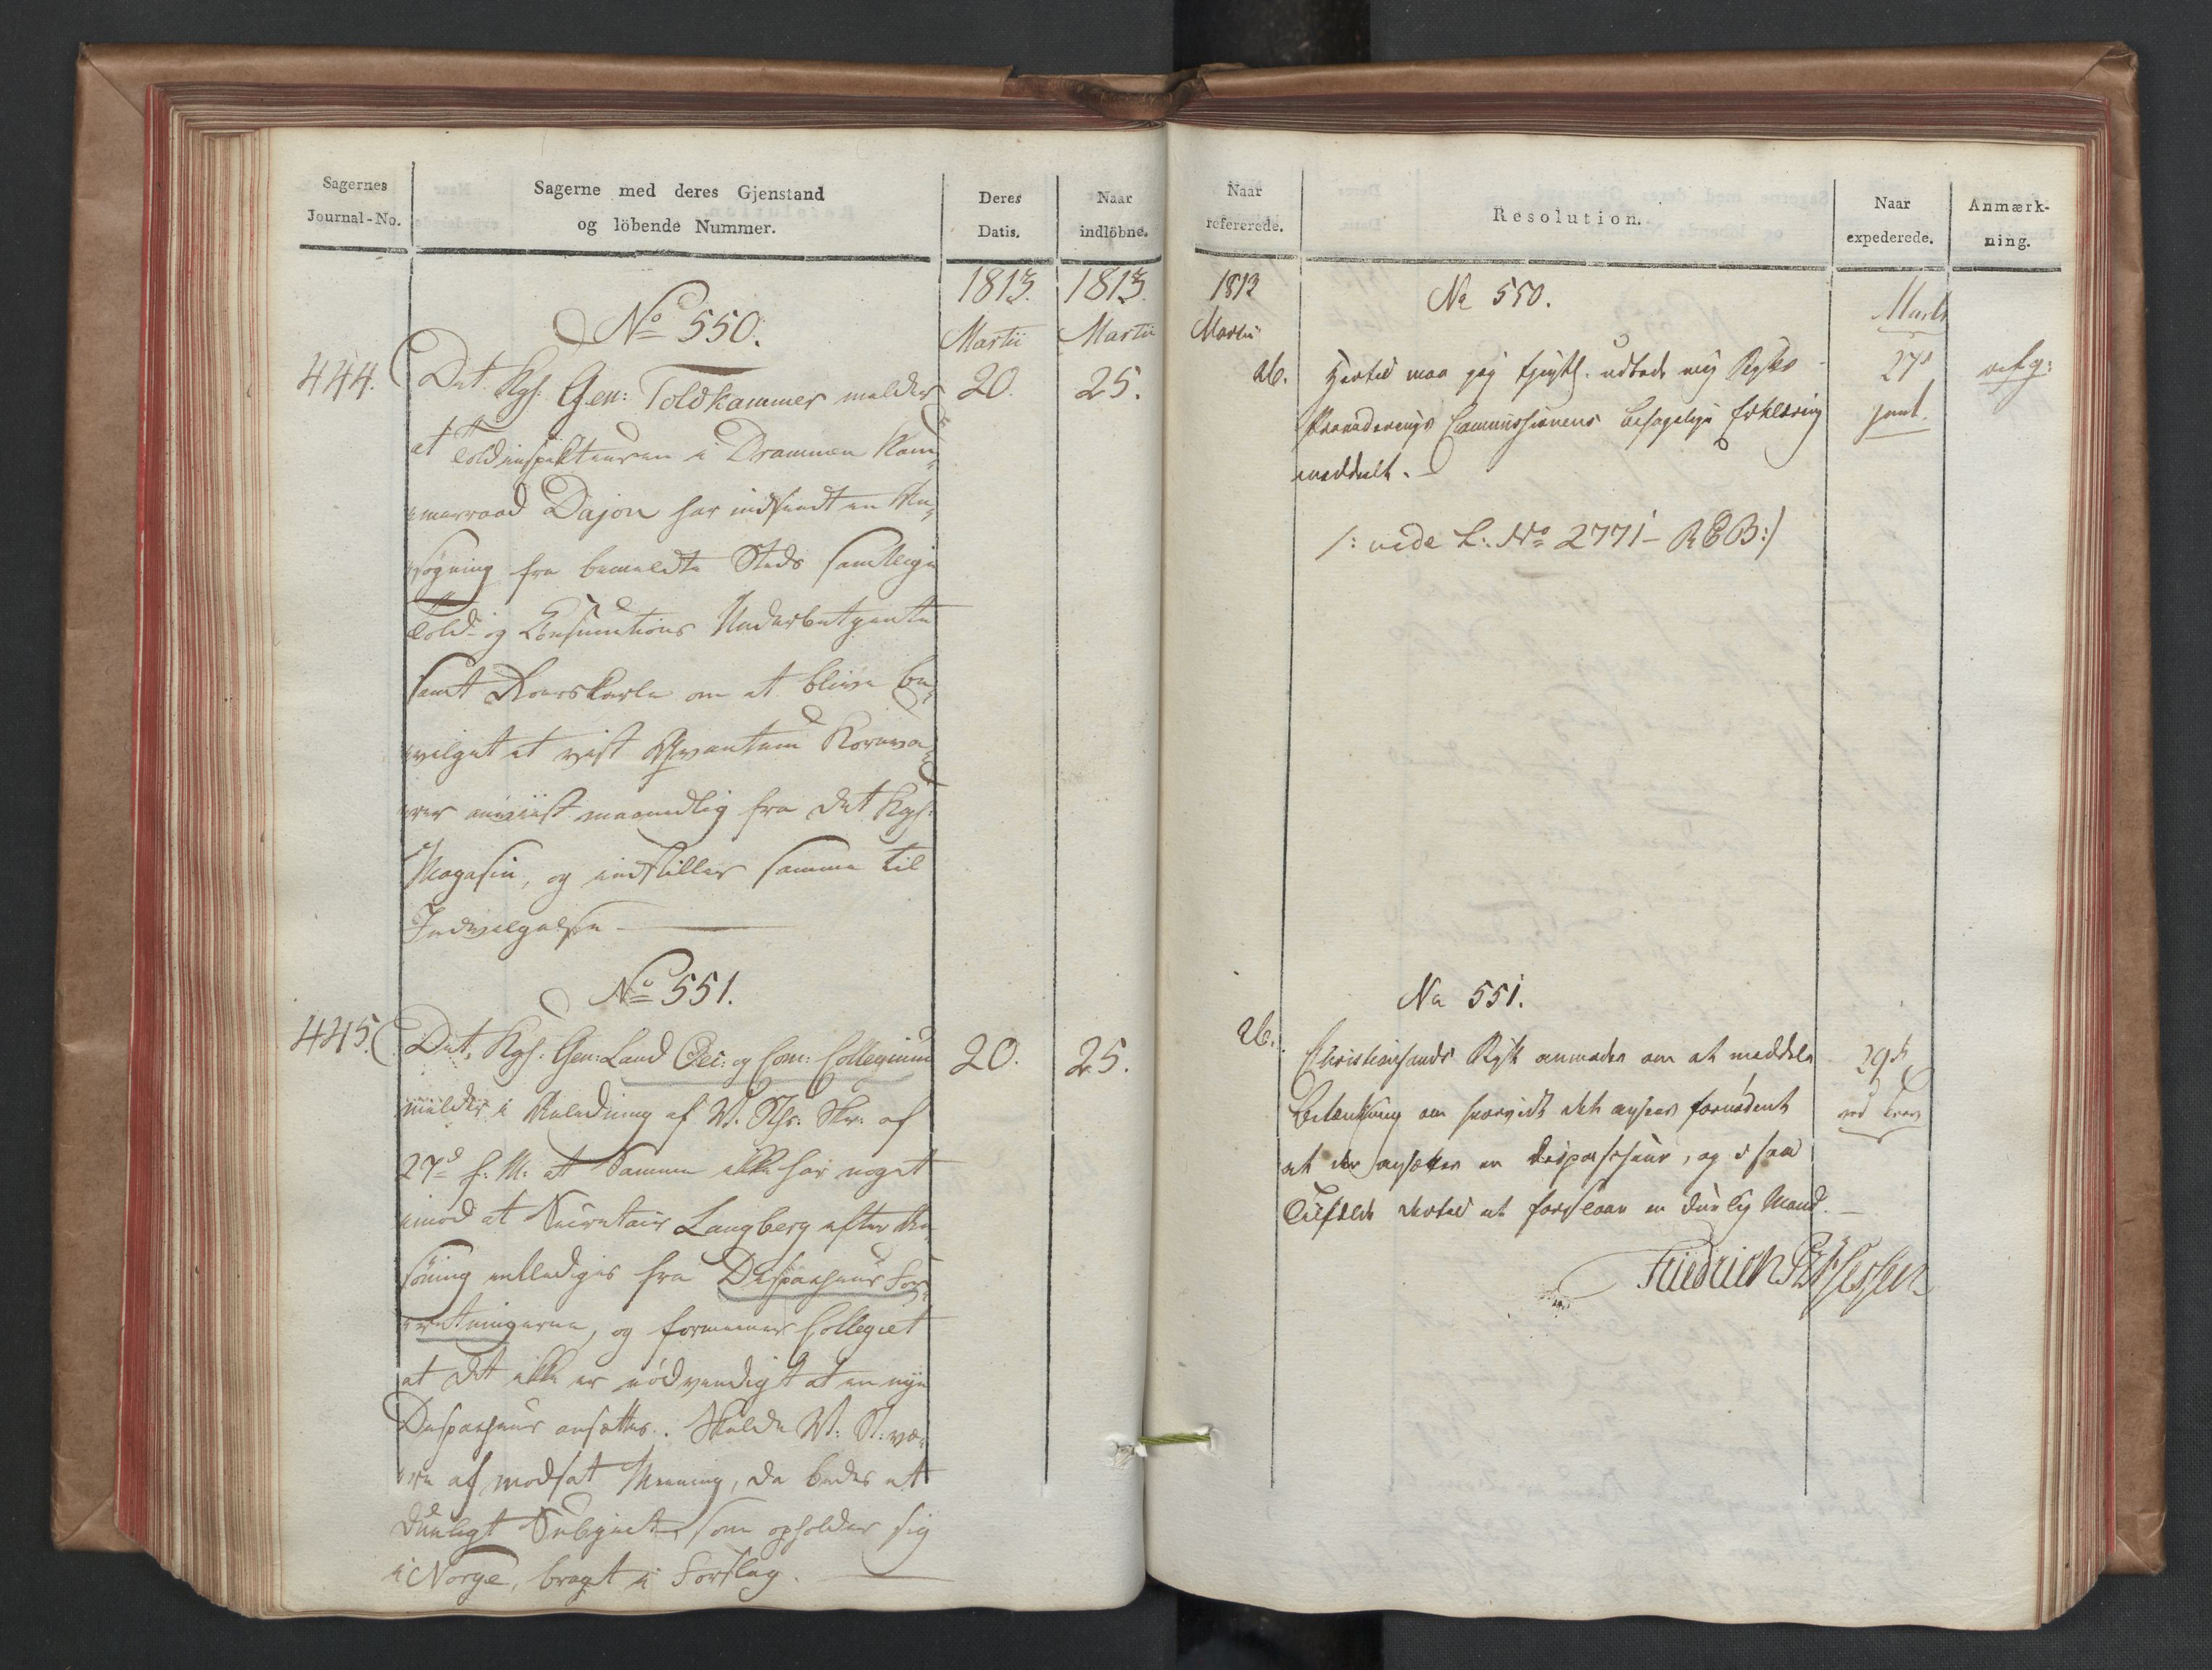 Sagernes
Journal-No.
Sagerne med deres Gjenstand
og löbende Nummer.
Deres
Datis.
Naar
indlöbne.
1813.
1813.
Martii
Martii
No 550.
444.
Det Kgl: Gen: Toldkammer melder
20.
25.
at Toldinspekteuren i Drammen Kam-
merraad Dajon har indsendt en An-
søgning fra bemeldte Steds samtlige
Told- og Consumtions Underbetjente
samt Roerskarle om at blive be-
vilget et vist Qvantum Kornva-
rer anviist maanedlig fra det Kgl:
Magasin, og indstiller samme til
Indvilgelse.
No 551.
445.
Det Kgl: Gen: Land Oec: og Com: Collegium
20.
25.
melder i Anledning af
27d f: M: at Samme ikke har noget
imod at Secretair Langberg efter An-
søgning entlediges fra Dispacheur For-
retningerne, og formener Collegiet
at det ikke er nødvendigt at en nye
Dispacheur ansættes. Skulde væ-
re af modsat Mening, da bedes et
dueligt Subject, som opholder sig
i Norge, bragt i Forslag.
Naar
refererede.
Resolution.
Naar
expederede.
Anmærk-
ning.
1813
Martii
No 550.
Marts
26.
Hertil maa jeg udbede mig Rigets
27d
Providerings Commissionens behagelige Erklæring
meddeelt.
/: vide L: No 2771 - REB:/
No 551.
26.
Christiansands Stift anmodes om at meddele
29d
Betænkning om hvorvidt det ansees fornødent
at der ansættes en Dispascheur, og i saa
Tilfælde dertil at foreslaae en duelig Mand.
Friedrich PzHessen